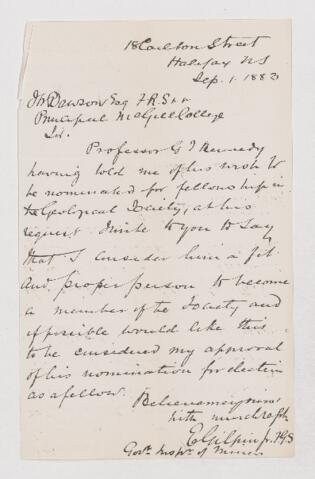 18 Carlton Street
Halifax NS
Sep. 1. 1883
Dawson Esq FRS
Principal McGill College
Sir.
Professor G T Kennedy
having told me of his wish to
be nominated for fellowship in
the Geological Society, at his
request I write to you to say
that I consider him a fit
and proper person to become
a member of the Society and
if possible would like this
to be considered my approval
of his nomination for election
as a fellow.
Believe me yours
with much respt
E Gilpin Jr. FGS
Govt. Inspr. of Mines